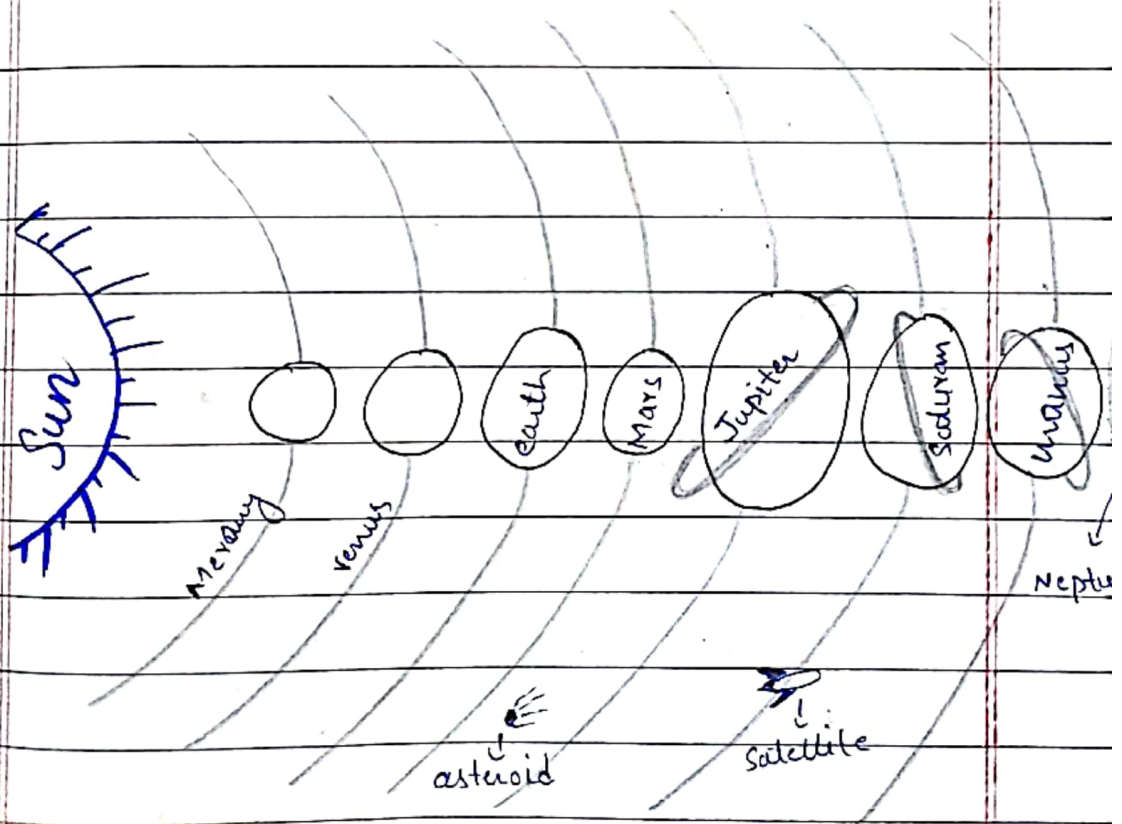 Sun
Mercury
venus
earth
Mars
Jupiter
Saduran
uranus
Neptu
asteroid
satellite